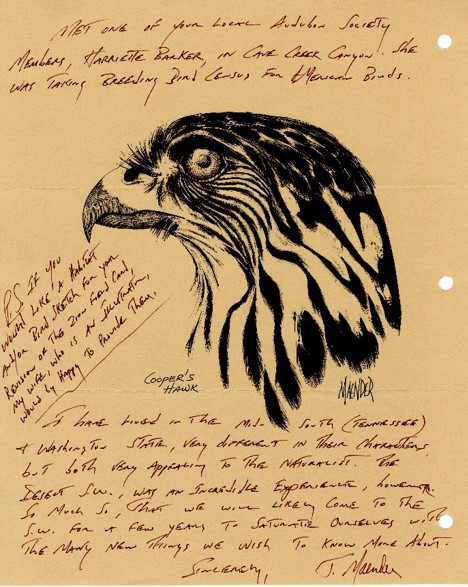 Met one of your local Audubon Society
Members, Harriette Barker, in Cave Creek Canyon. She
was taking Breeding Bird Census for American Birds.
P.S. If you
would like a habitat
and/or bird sketch for your
revision of the Zion Field Card,
my wife, who is an illustrator,
would by happy to provide them.
Cooper's
Hawk
Maender
I have lived in the Mid South (Tennessee)
+ Washington State, very different in their characters,
but both very appealing to the naturalist. The
Desert S.W., was an incredible experience, however.
So much so, that we will likely come to the
S.W. for a few years to saturate ourselves with
the many new things we wish to know more about.
Sincerely, J. Maender